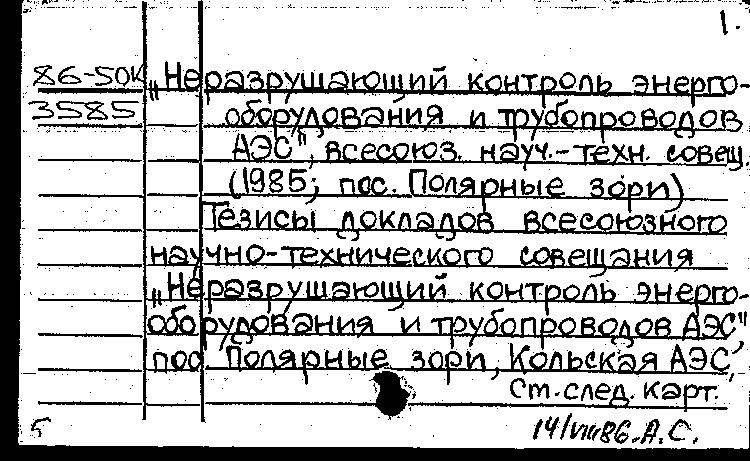 1.
86-50К „Неразрушающий контроль энерго-
3585 оборудования и трубопроводов
АЭС", всесоюз. науч.-техн. совещ.
(1985; пос. Полярные зори)
Тезисы докладов всесоюзного
научно-технического совещания
„Неразрушающий контроль энерго-
оборудования и трубопроводов АЭС",
пос. Полярные зори, Кольская АЭС,
См. след. карт.
5 14/VIII86. А.С.